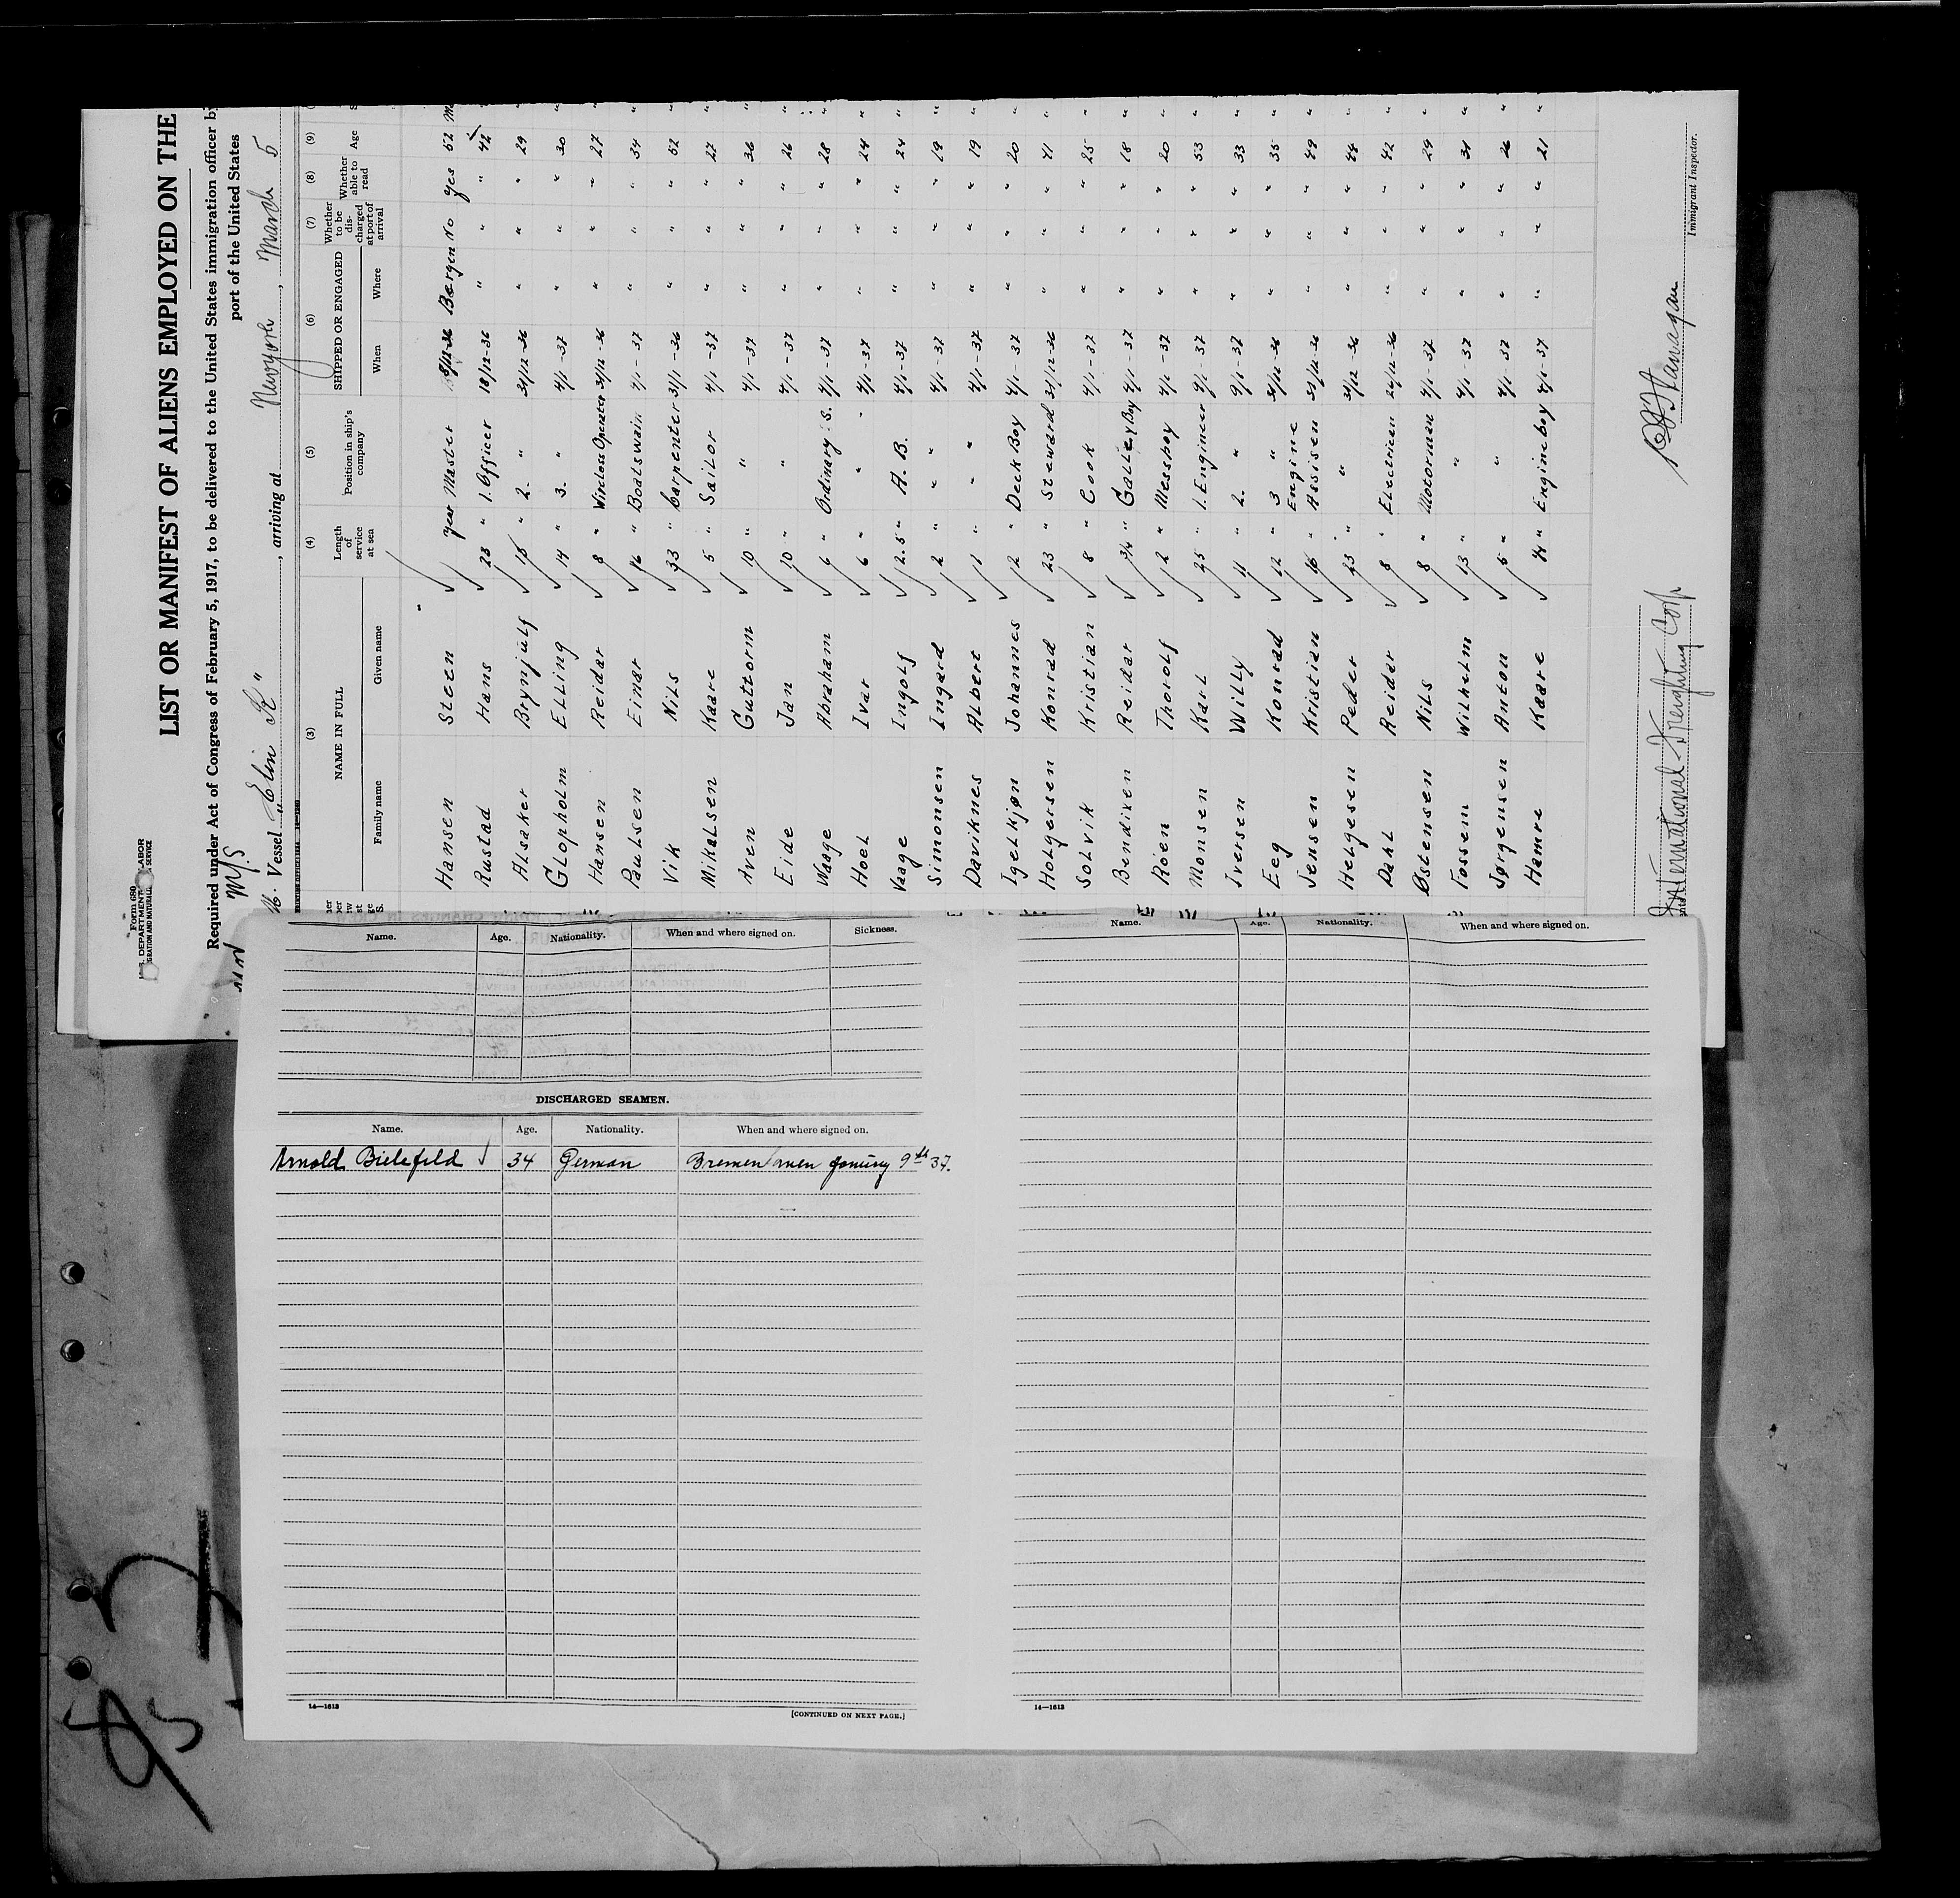 Form 680
U.S. DEPARTMENT LABOR
IMMIGRATION AND NATURALIZATION SERVICE
LIST OR MANIFEST OF ALIENS EMPLOYED ON THE
Required under Act of Congress of February 5, 1917, to be delivered to the United States immigration officer by
port of the United States
M/S
Vessel "Elin K", arriving at Newyork, March 5
(3) (4) (5) (6) (7) (8) (9)
NAME IN FULL Length of service at sea Position in ship's company SHIPPED OR ENGAGED Whether to be discharged at port of arrival Whether able to read Age
Family name Given name When Where
Hansen Steen year Master 8/12-36 Bergen No yes 52
Rustad Hans 23 " 1. Officer 18/12-36 " " " 42
Alsaker Brynjulf 15 " 2. " 31/12-36 " " " 29
Glopholm Elling 14 " 3. " 4/1-37 " " " 30
Hansen Reidar 8 " Wireless Operater 31/12-36 " " " 27
Paulsen Einar 16 " Boatswain 4/1-37 " " " 34
Vik Nils 33 " Carpenter 31/1-36 " " " 52
Mikalsen Kaare 5 " Sailor 4/1-37 " " " 27
Aven Guttorm 10 " " 4/1-37 " " " 36
Eide Jan 10 " " 4/1-37 " " " 26
Waage Abraham 6 " Ordinary S. 4/1-37 " " " 28
Hoel Ivar 6 " " 4/1-37 " " " 24
Vaage Ingolf 2.5 " A.B. 4/1-37 " " " 24
Simonsen Ingard 2 " " 4/1-37 " " " 19
Daviknes Albert 1 " " 4/1-37 " " " 19
Igelkjøn Johannes 2 " Deck Boy 4/1-37 " " " 20
Holgersen Konrad 23 " Steward 31/12-36 " " " 41
Solvik Kristian 8 " Cook 4/1-37 " " " 25
Bendixen Reidar 3/4 " Galley Boy 4/1-37 " " " 18
Röen Thorolf 2 " Messboy 4/1-37 " " " 20
Monsen Karl 25 " 1. Engineer 9/1-37 " " " 53
Iversen Willy 11 " 2. " 9/1-37 " " " 33
Eeg Konrad 12 " 3 " 31/12-36 " " " 35
Jensen Kristian 16 " Engine Assisen 31/12-36 " " " 49
Helgesen Peder 23 " " 31/12-36 " " " 48
Dahl Reidar 8 " Electrican 24/12-36 " " " 42
Østensen Nils 8 " Motorman 4/1-37 " " " 29
Fossem Wilhelm 13 " " 4/1-37 " " " 31
Jørgensen Anton 5 " " 4/1-37 " " " 26
Hamre Kaare 4 " Engineboy 4/1-37 " " " 21
International Freighting Corp
Immigrant Inspector.
Name. Age. Nationality. When and where signed on. Sickness.
DISCHARGED SEAMEN.
Name. Age. Nationality. When and where signed on.
Arnold Bielefeld 34 German Bremen 9th 37.
14—1613
[CONTINUED ON NEXT PAGE.]
Name. Age. Nationality. When and where signed on.
14—1613